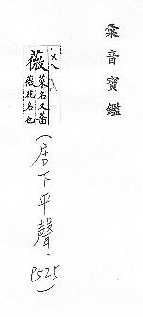 彙音寶鑑
薇 菜名又薔
薇花名也
(居下平聲, P525)